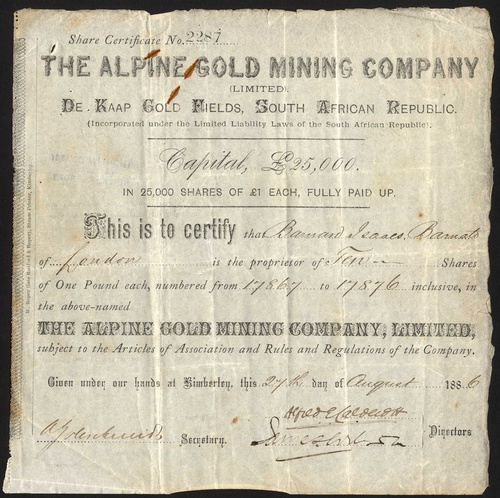 Share Certificate No. 2287
THE ALPINE GOLD MINING COMPANY
(LIMITED).
DE KAAP GOLD FIELDS, SOUTH AFRICAN REPUBLIC.
(Incorporated under the Limited Liability Laws of the South African Republic).
Capital, £25,000.
IN 25,000 SHARES OF £1 EACH, FULLY PAID UP.
This is to certify that Barnard Isaacs Barnato
of London is the proprietor of Ten Shares
of One Pound each, numbered from 17867 to 17876 inclusive, in
the above-named
THE ALPINE GOLD MINING COMPANY, LIMITED,
subject to the Articles of Association and Rules and Regulations of the Company.
Given under our hands at Kimberley, this 27th day of August 1886
Secretary.
Directors